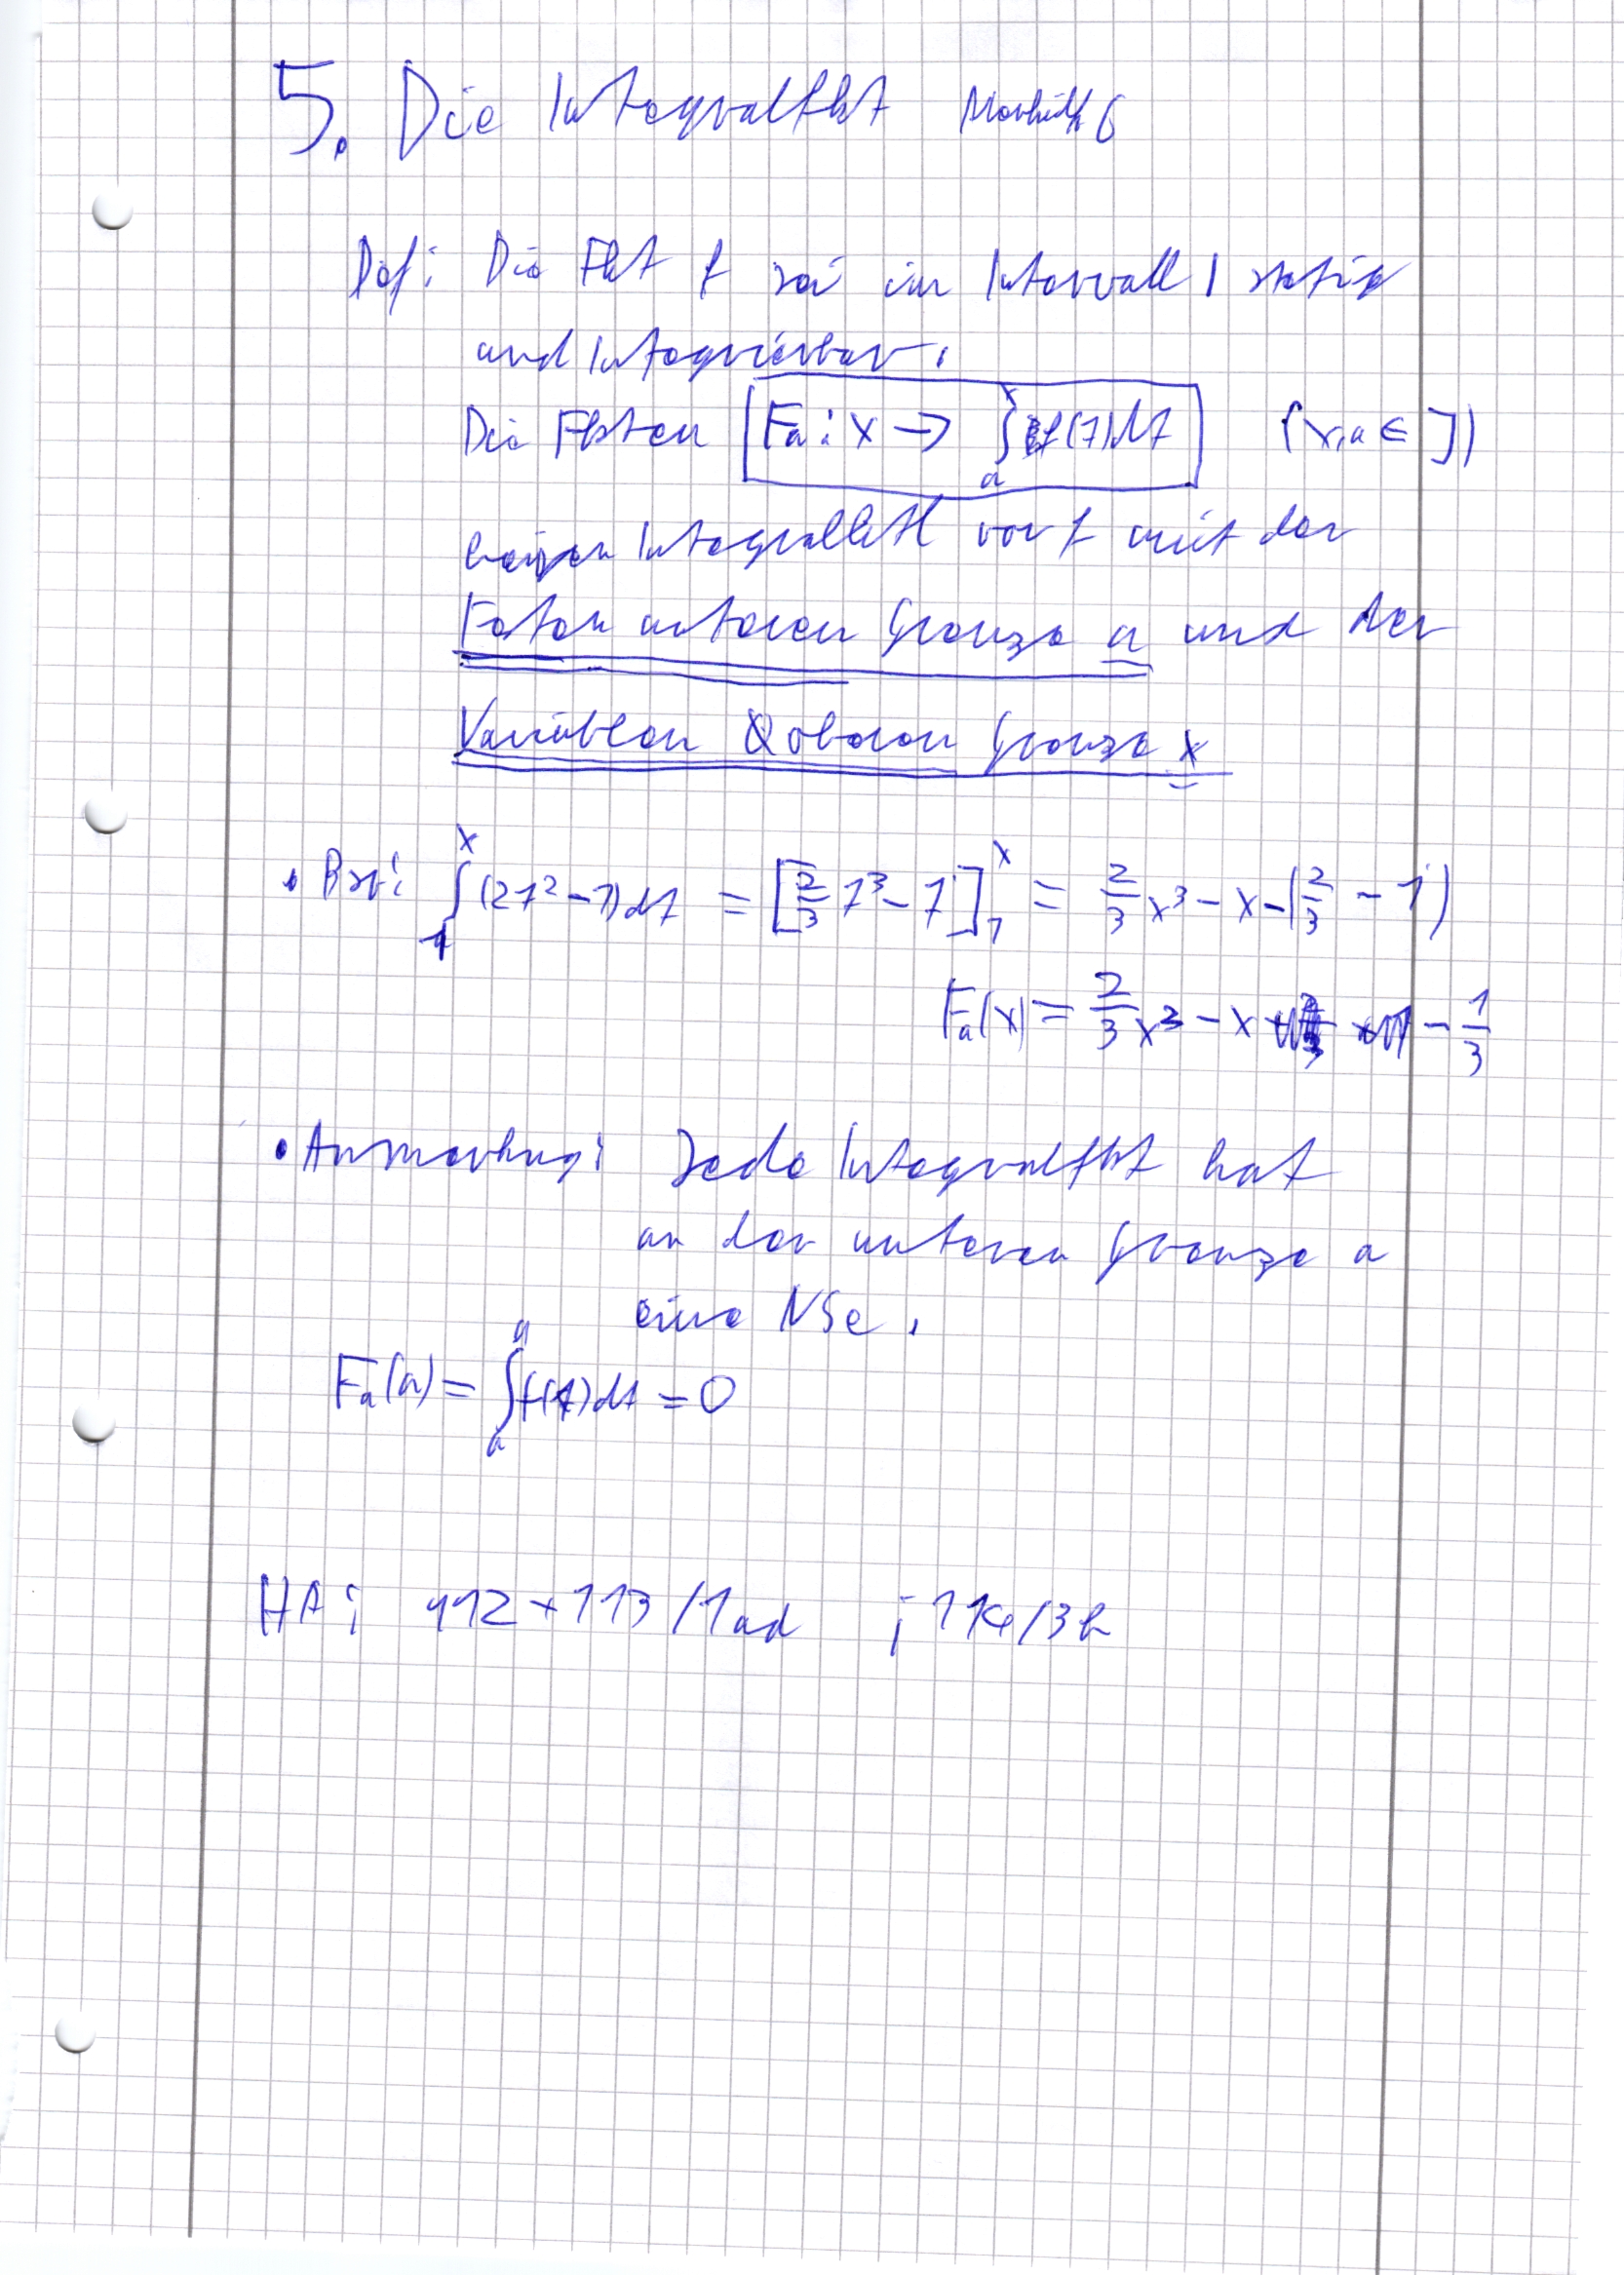 5. Die Integralfkt Merkhilfe 6
Def: Die Fkt f sei im Intervall I stetig
und Integrierbar.
Die Fkten Fa: x → ∫ₐˣ f(t)dt (x,a ∈ I)
heißen Integralfkt von f mit der
Festen unteren Grenze a und der
Variablen oberen Grenze x
• Bsp: ∫₁ˣ (2t² - 1) dt = [2/3 t³ - t]₁ˣ = 2/3 x³ - x - (2/3 - 1)
Fa(x) = 2/3 x³ - x - 1/3
• Anmerkung: Jede Integralfkt hat
an der unteren Grenze a
eine NSe.
Fa(a) = ∫ₐᵃ f(t)dt = 0
HA: 112 + 113 / 1ad ; 114/3b